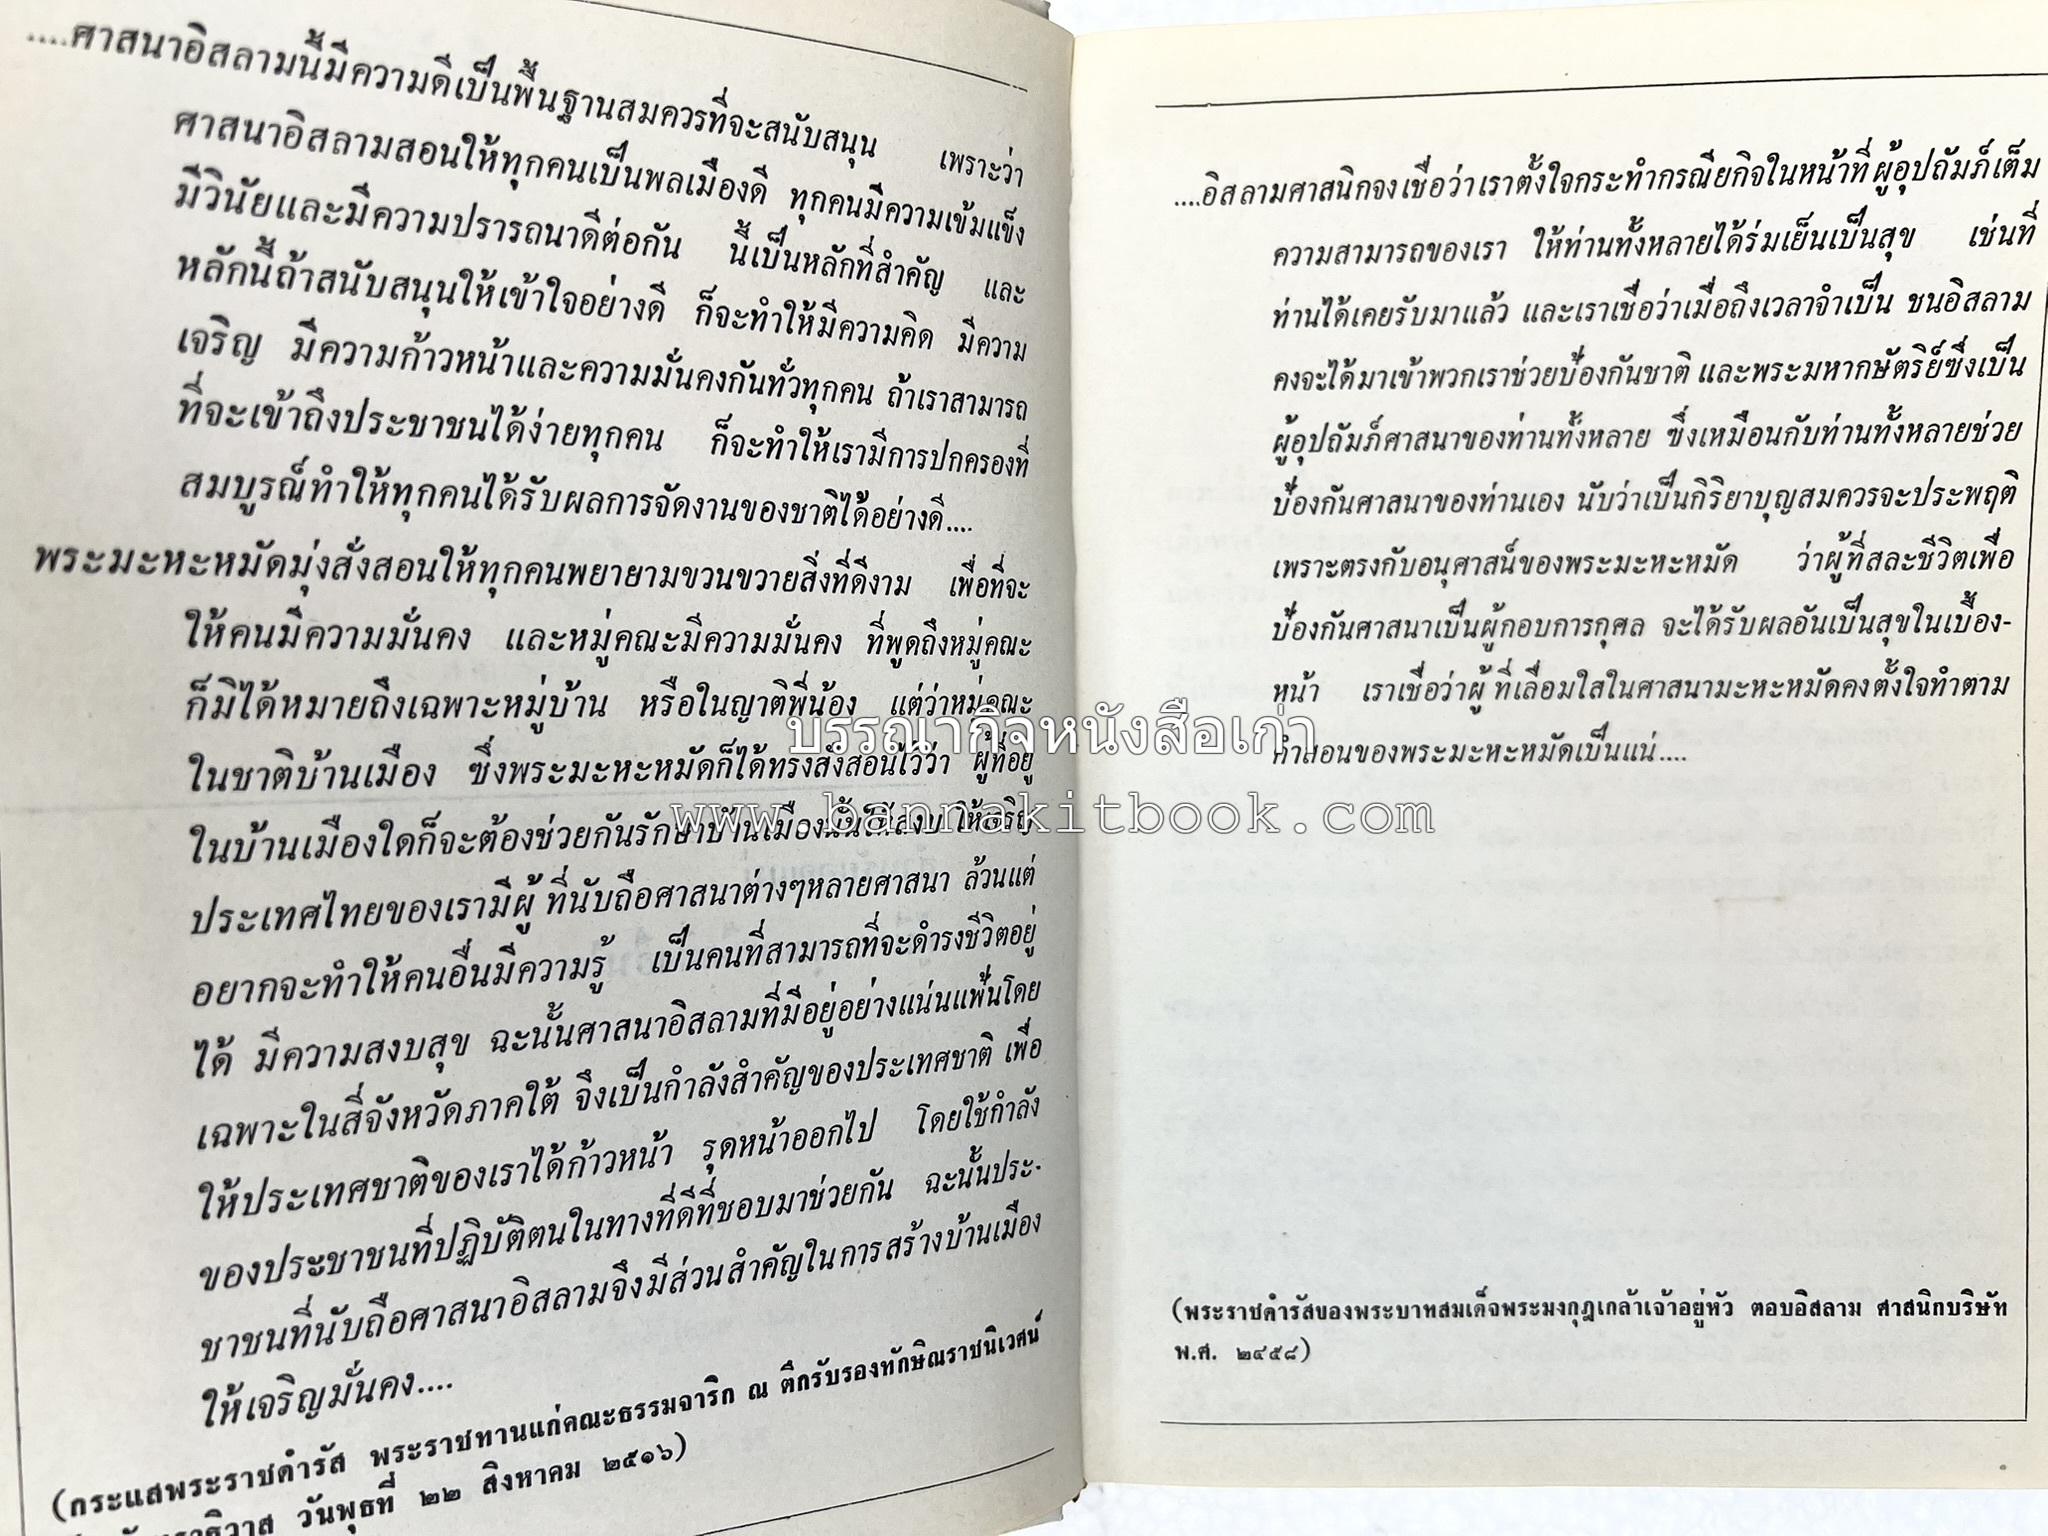 ....ศาสนาอิสลามนี้มีความดีเป็นพื้นฐานสมควรที่จะสนับสนุน เพราะว่า
ศาสนาอิสลามสอนให้ทุกคนเป็นพลเมืองดี ทุกคนมีความเข้มแข็ง
มีวินัยและมีความปรารถนาดีต่อกัน นี้เป็นหลักที่สำคัญ และ
หลักนี้ถ้าสนับสนุนให้เข้าใจอย่างดี ก็จะทำให้มีความคิด มีความ
เจริญ มีความก้าวหน้าและความมั่นคงกันทั่วทุกคน ถ้าเราสามารถ
ที่จะเข้าถึงประชาชนได้ง่ายทุกคน ก็จะทำให้เรามีการปกครองที่
สมบูรณ์ทำให้ทุกคนได้รับผลการจัดงานของชาติได้อย่างดี....
พระมะหะหมัดมุ่งสั่งสอนให้ทุกคนพยายามขวนขวายสิ่งที่ดีงาม เพื่อที่จะ
ให้คนมีความมั่นคง และหมู่คณะมีความมั่นคง ที่พูดถึงหมู่คณะ
ก็มิได้หมายถึงเฉพาะหมู่บ้าน หรือในญาติพี่น้อง แต่ว่าหมู่คณะ
ในชาติบ้านเมือง ซึ่งพระมะหะหมัดก็ได้ทรงสั่งสอนไว้ว่า ผู้ที่อยู่
ในบ้านเมืองใดก็จะต้องช่วยกันรักษาบ้านเมืองนั้นให้สงบ ให้เจริญ
ประเทศไทยของเรามีผู้ที่นับถือศาสนาต่างๆหลายศาสนา ล้วนแต่
อยากจะทำให้คนอื่นมีความรู้ เป็นคนที่สามารถที่จะดำรงชีวิตอยู่
ได้ มีความสงบสุข ฉะนั้นศาสนาอิสลามที่มีอยู่อย่างแน่นแฟ้นโดย
เฉพาะในสี่จังหวัดภาคใต้ จึงเป็นกำลังสำคัญของประเทศชาติ เพื่อ
ให้ประเทศชาติของเราได้ก้าวหน้า รุดหน้าออกไป โดยใช้กำลัง
ของประชาชนที่ปฏิบัติตนในทางที่ดีที่ชอบมาช่วยกัน ฉะนั้นประ-
ชาชนที่นับถือศาสนาอิสลามจึงมีส่วนสำคัญในการสร้างบ้านเมือง
ให้เจริญมั่นคง....
(กระแสพระราชดำรัส พระราชทานแก่คณะธรรมจาริก ณ ตึกรับรองทักษิณราชนิเวศน์
วันพุธที่ ๒๒ สิงหาคม ๒๕๑๖)
....อิสลามศาสนิกจงเชื่อว่าเราตั้งใจกระทำกรณียกิจในหน้าที่ผู้อุปถัมภ์เต็ม
ความสามารถของเรา ให้ท่านทั้งหลายได้ร่มเย็นเป็นสุข เช่นที่
ท่านได้เคยรับมาแล้ว และเราเชื่อว่าเมื่อถึงเวลาจำเป็น ชนอิสลาม
คงจะได้มาเข้าพวกเราช่วยป้องกันชาติ และพระมหากษัตริย์ซึ่งเป็น
ผู้อุปถัมภ์ศาสนาของท่านทั้งหลาย ซึ่งเหมือนกับท่านทั้งหลายช่วย
ป้องกันศาสนาของท่านเอง นับว่าเป็นกิริยาบุญสมควรจะประพฤติ
เพราะตรงกับอนุศาสน์ของพระมะหะหมัด ว่าผู้ที่สละชีวิตเพื่อ
ป้องกันศาสนาเป็นผู้กอบการกุศล จะได้รับผลอันเป็นสุขในเบื้อง-
หน้า เราเชื่อว่าผู้ที่เลื่อมใสในศาสนามะหะหมัดคงตั้งใจทำตาม
คำสอนของพระมะหะหมัดเป็นแน่....
(พระราชดำรัสของพระบาทสมเด็จพระมงกุฎเกล้าเจ้าอยู่หัว ตอบอิสลาม ศาสนิกบริษัท
พ.ศ. ๒๔๕๘)
บรรณากิจหนังสือเก่า
www.bannakitbook.com